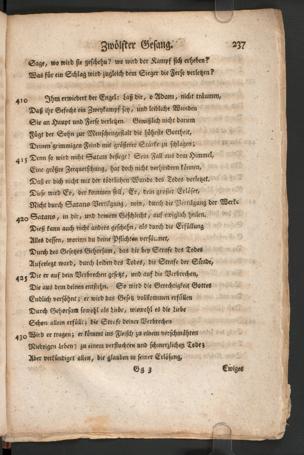 Zwölfter Gesang. 237
Sage, wo wird sie geschehn? wo wird der Kampf sich erheben?
Was für ein Schlag wird zugleich dem Sieger die Ferse verletzen?
410 Ihm erwiedert der Engel: laß dir, o Adam, nicht träumen,
Daß ihr Gefecht ein Zweykampf sey, und leibliche Wunden
Sie an Haupt und Ferse verletzen. Gewißlich nicht darum
Fügt der Sohn zur Menschengestalt die höheste Gottheit,
Deinen grimmigen Feind mit größerer Stärke zu schlagen;
415 Denn so wird nicht Satan besiegt! Sein Fall aus dem Himmel,
Eine größre Zerquetschung, hat doch nicht verhindern können,
Daß er dich nicht mit der tödtlichen Wunde des Todes verletzt.
Diese wird Er, der kommen soll, Er, dein großer Erlöser,
Nicht durch Satans Vertilgung, nein, durch die Vertilgung der Werke
420 Satans, in dir, und deinem Geschlecht, auf ewiglich heilen.
Dieß kann auch nicht anders geschehn, als durch die Erfüllung
Alles dessen, worinn du deine Pflichten versäumet,
Durch des Gesetzes Gehorsam, das dir bey Strafe des Todes
Auferlegt ward, durch leiden des Todes, die Strafe der Sünde,
425 Die er auf dein Verbrechen gesetzt, und auf die Verbrechen,
Die aus dem deinen entstehn. So wird die Gerechtigkeit Gottes
Endlich versöhnt; er wird das Gesetz vollkommen erfüllen
Durch Gehorsam sowohl als Liebe, wiewohl es die Liebe
Schon allein erfüllt; die Strafe deiner Verbrechen
430 Wird er tragen; er kömmt ins Fleisch zu einem verschmähten
Niedrigen Leben; zu einem verfluchten und schmerzlichen Tode;
Aber verkündiget allen, die glauben in seiner Erlösung,
Gg 3 Ewiges